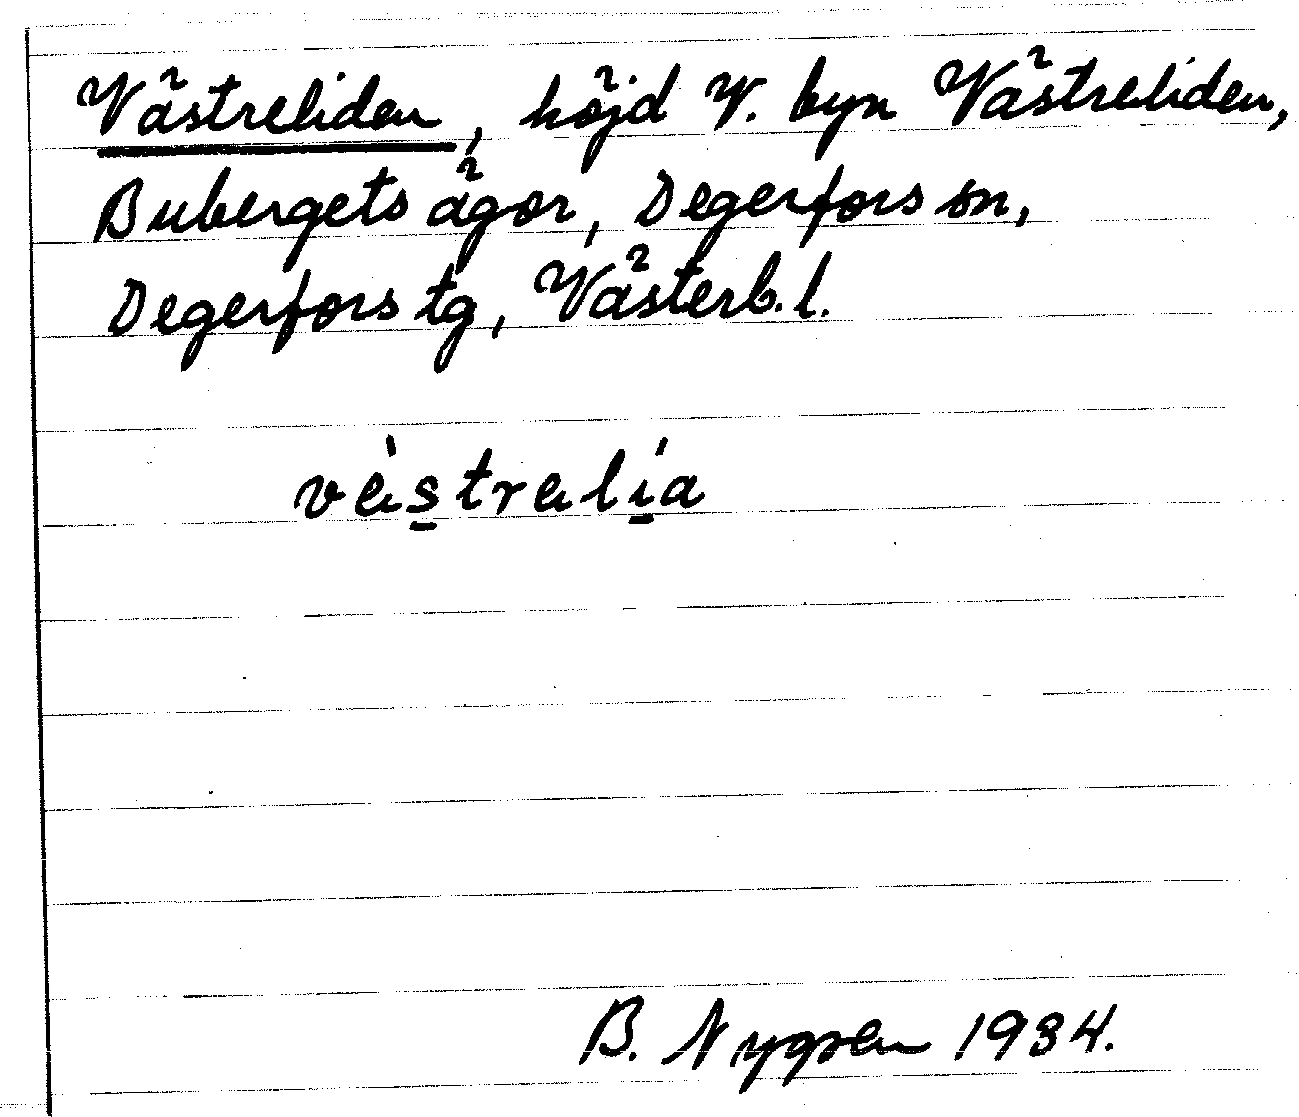 Västreliden, höjd V. byn Västreliden,
Bubergets ägor, Degerfors sn,
Degerfors tg, Västerb. l.
vàstralía
B. Nygren 1934.